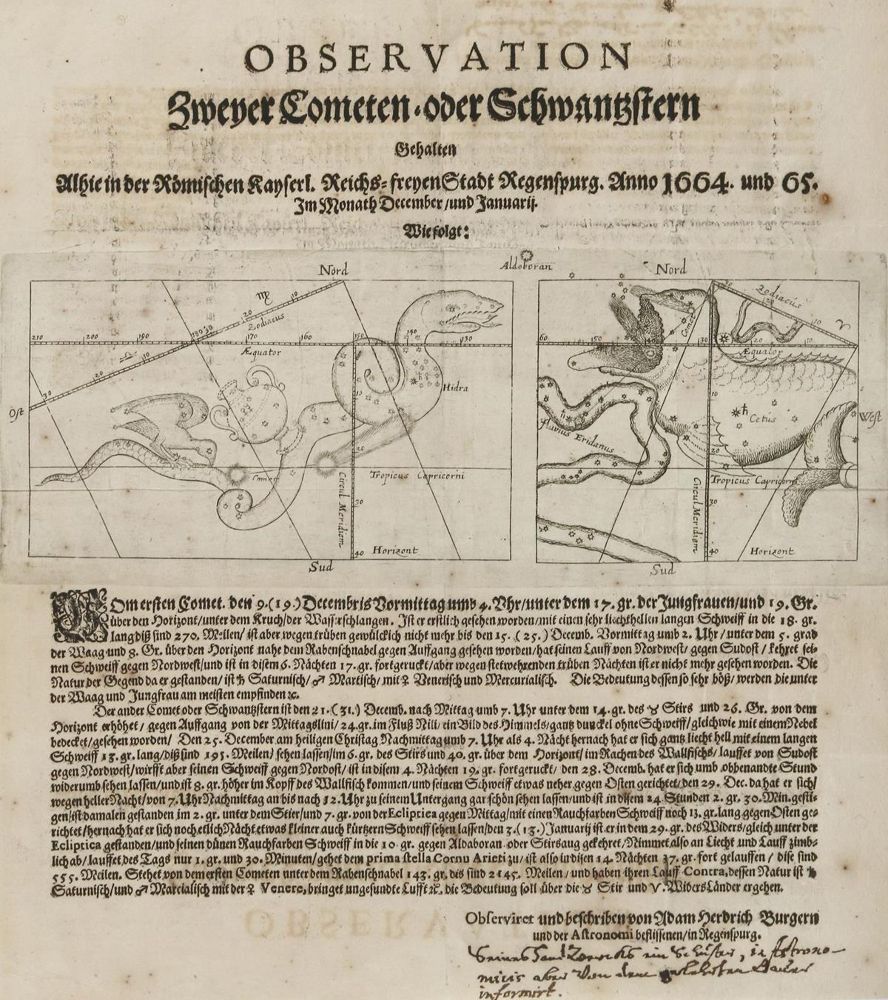 OBSERVATION
Zweyer Cometen-oder Schwantzstern
Gehalten
Alhie in der Römischen Kayserl. Reichs-freyen Stadt Regenspurg. Anno 1664. und 65.
Im Monath December/und Januarij.
Wie folgt:
Nord
Aldoboran
Nord
Zodiacus
Zodiacus
Æquator
Æquator
Hidra
Ost
Fluvius Eridanus
Cetus
West
Tropicus Capricorni
Tropicus Capricorni
Circul Meridiem
Circul Meridiem
Horizont
Horizont
Sud
Sud
VOm ersten Comet. den 9. (19.) Decembris Vormittag umb 4. Vhr/unter dem 17. gr. der Jungfrauen/und 19. Gr.
über den Horizont/unter dem Kruch/der Wasserschlangen. Ist er erstlich gesehen worden/mit einen sehr liechthellen langen Schweiff in die 18. gr.
lang diß sind 270. Meilen/ ist aber wegen trüben gewülcklich nicht mehr bis den 15. (25.) Decemb. Vormittag umb 2. Uhr/ unter dem 5. grad
der Waag und 8. Gr. über den Horizont nahe dem Rabenschnabel gegen Auffgang gesehen worden/hat seinen Lauff von Nordwest/ gegen Sudost/ kehret sei-
nen Schweiff gegen Nordwest/und ist in disem 6. Nächten 17. gr. fortgeruckt/aber wegen stetwehrenden trüben Nächten ist er nicht mehr gesehen worden. Die
Natur der Gegend da er gestanden/ist ♄ Saturnisch/♂ Martisch/mit ♀ Venerisch und Mercurialisch. Die Bedeutung dessen so sehr böß/ werden die unter
der Waag und Jungfrau am meisten empfinden ꝛc.
Der ander Comet oder Schwantzstern ist den 21. (31.) Decemb. nach Mittag umb 7. Uhr unter dem 14. gr. des ♉ Stirs und 26. Gr. von dem
Horizont erhöhet/ gegen Auffgang von der Mittagslini/ 24. gr. im Fluß Nili/ ein Bild des Himmels/gantz dunckel ohne Schweiff/gleichwie mit einem Nebel
bedecket/gesehen worden/ Den 25. December am heiligen Christag Nachmittag umb 7. Uhr als 4. Nächt hernach hat er sich gantz liecht hell mit einem langen
Schweiff 13. gr. lang/diß sind 195. Meilen/ sehen lassen/im 6. gr. des Stirs und 40. gr. über dem Horizont/im Rachen des Wallfischs/ lauffet von Sudost
gegen Nordwest/wirfft aber seinen Schweiff gegen Nordost/ ist in disem 4. Nächten 19. gr. fortgeruckt/ den 28. Decemb. hat er sich umb obbenandte Stund
widerumb sehen lassen/und ist 8. gr. höher im Kopff des Wallfisch kommen/und seinem Schweiff etwas neher gegen Osten gerichtet/den 29. Dec. da hat er sich/
wegen heller Nacht/von 7. Uhr Nachmittag an bis nach 12. Uhr zu seinem Untergang gar schön sehen lassen/und ist in disem 24 Stunden 2. gr. 30. Min. gesti-
gen/ist damalen gestanden im 2. gr. unter dem Stier/und 7. gr. von der Ecliptica gegen Mittag/ mit einen Rauchfarben Schweiff noch 13. gr. lang gegen Osten ge-
richtet/hernach hat er sich noch etlich Nächt etwas kleiner auch kürtzern Schweiff sehen lassen/den 3. (13.) Januarij ist er in dem 29. gr. des Widers/gleich unter der
Ecliptica gestanden/und seinen dünen Rauchfarben Schweiff in die 10. gr. gegen Aldaboran oder Stirsaug gekehret/Nimmet also an Liecht und Lauff zimb-
lich ab/lauffet des Tags nur 1. gr. und 30. Minuten/gehet dem prima stella Cornu Arieti zu/ ist also in disen 14. Nächten 37. gr. fort gelauffen/ dise sind
555. Meilen. Stehet von dem ersten Cometen unter dem Rabenschnabel 143. gr. dis sind 2145. Meilen/ und haben ihren Lauff Contra, dessen Natur ist ♄
Saturnisch/und ♂ Marcialisch mit der ♀ Venere, bringet ungesundte Lufft ꝛc. die Bedeutung soll über die ♉ Stir und ♈. Widers Länder ergehen.
Observiret und beschriben von Adam Herdrich Burgern
und der Astronomi beflissenen/in Regenspurg.
informirt.